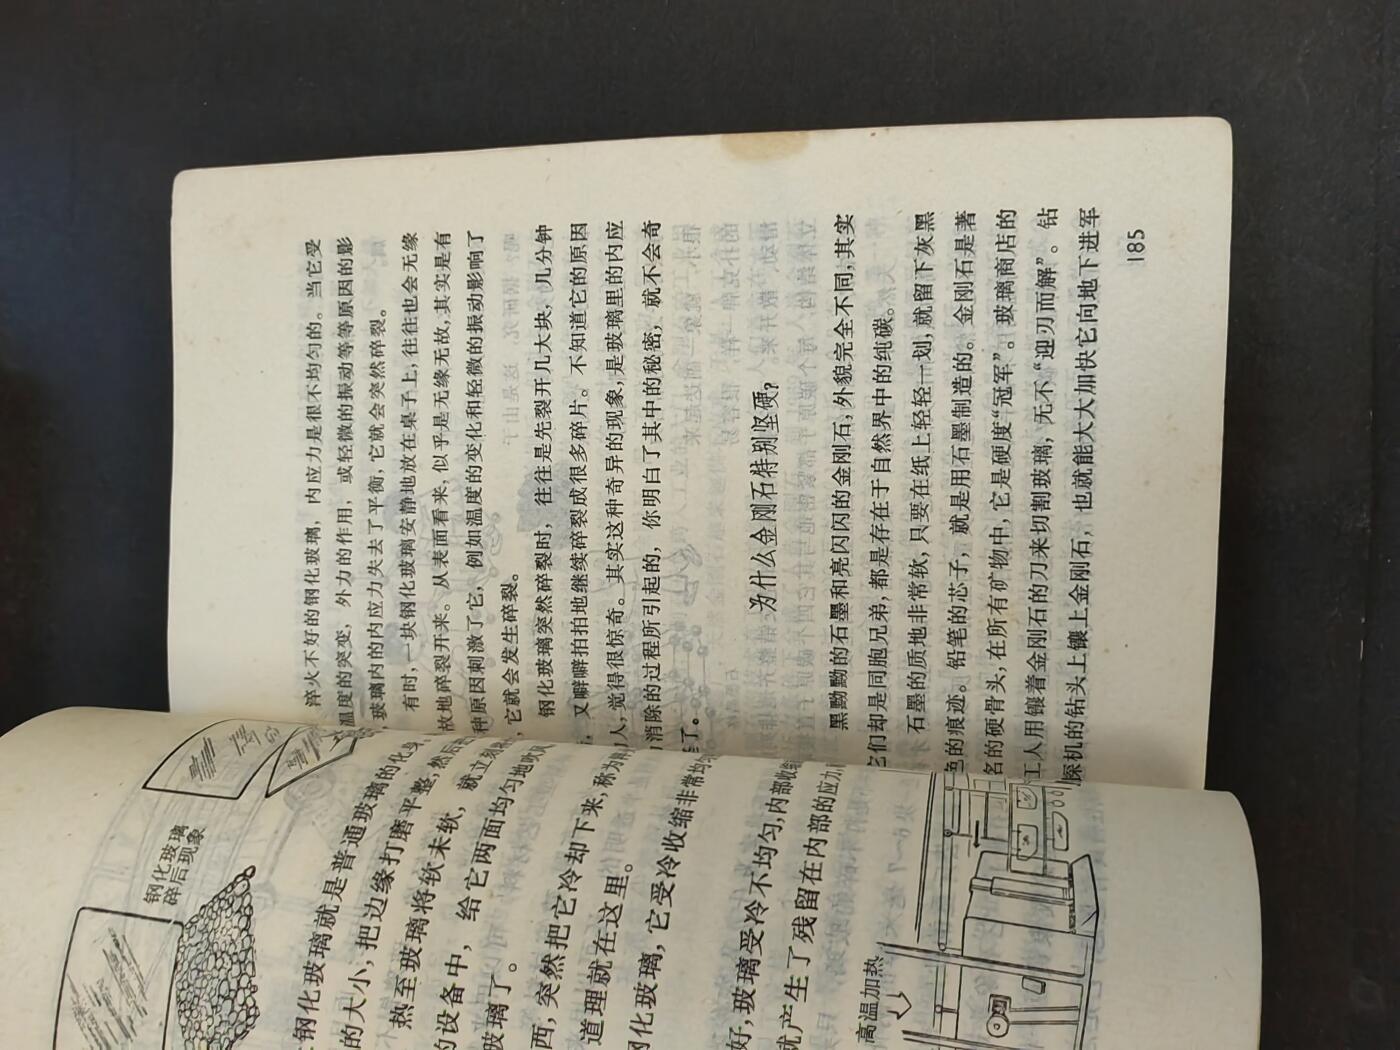 钢化玻璃
碎后现象
钢化玻璃就是普通玻璃的化身
的大小，把边缘打磨平整，然后
热至玻璃将软未软，就立刻
的设备中，给它两面均匀地吹风
玻璃了。
西，突然把它冷却下来，称为
道理就在这里。
钢化玻璃，它受冷收缩非常均
好，玻璃受冷不均匀，内部收缩
就产生了残留在内部的应力
高温加热
淬火不好的钢化玻璃，内应力是很不均匀的。当它受
温度的突变，外力的作用，或轻微的振动等等原因的影
，玻璃内的内应力失去了平衡，它就会突然碎裂。
有时，一块钢化玻璃安静地放在桌子上，往往也会无缘
故地碎裂开来。从表面看来，似乎是无缘无故，其实是有
种原因刺激了它，例如温度的变化和轻微的振动影响了
，它就会发生碎裂。
钢化玻璃突然碎裂时，往往是先裂开几大块，几分钟
，又噼噼拍拍地继续碎裂成很多碎片。不知道它的原因
人，觉得很惊奇。其实这种奇异的现象，是玻璃里的内应
消除的过程所引起的，你明白了其中的秘密，就不会奇
了。
为什么金刚石特别坚硬？
黑黝黝的石墨和亮闪闪的金刚石，外貌完全不同，其实
它们却是同胞兄弟，都是存在于自然界中的纯碳。
石墨的质地非常软，只要在纸上轻轻一划，就留下灰黑
色的痕迹。铅笔的芯子，就是用石墨制造的。金刚石是著
名的硬骨头，在所有矿物中，它是硬度“冠军”。玻璃商店的
工人用镶着金刚石的刀来切割玻璃，无不“迎刃而解”。钻
探机的钻头上镶上金刚石，也就能大大加快它向地下进军
185